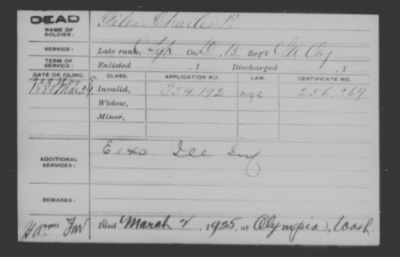 DEAD
NAME OF SOLDIER: Charles P.
SERVICE: Late rank, Co. 15 Reg't Cav
TERM OF SERVICE: Enlisted , 1 Discharged , 1
DATE OF FILING. CLASS. APPLICATION NO. LAW. CERTIFICATE NO.
1880 Mar. 29. Invalid, 354.192 256.369
Widow,
Minor,
ADDITIONAL SERVICES: E 140 Inf
REMARKS:
Died March 2, 1925, at Olympia, Wash.